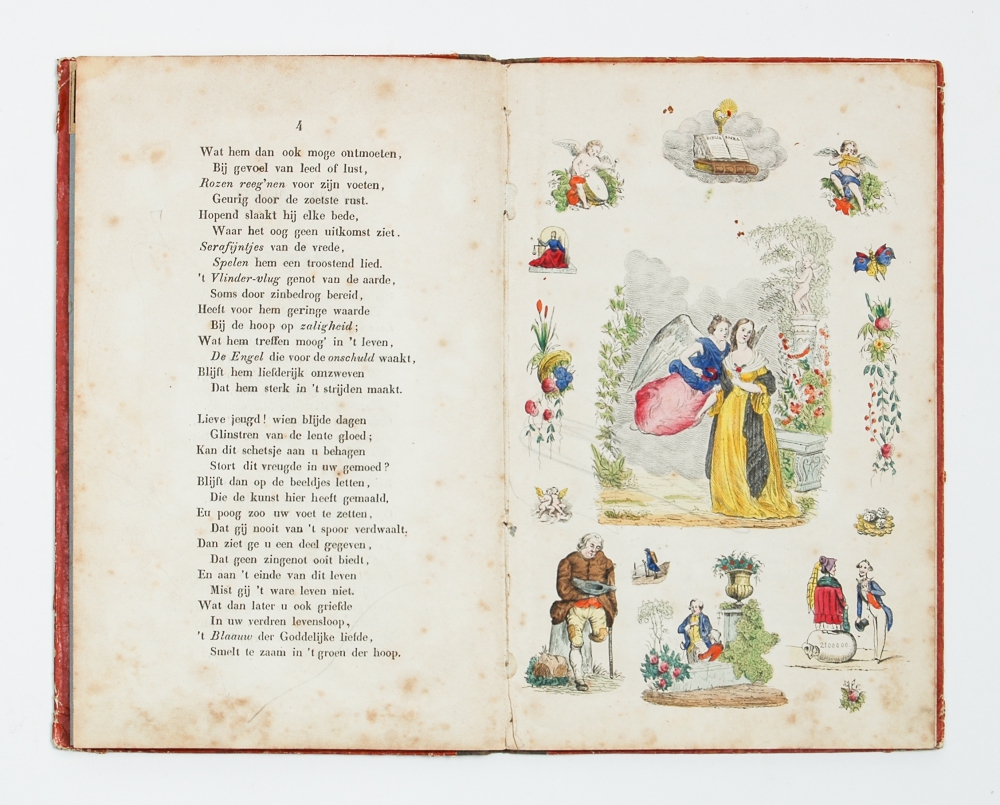 4
Wat hem dan ook moge ontmoeten,
Bij gevoel van leed of lust,
Rozen reeg'nen voor zijn voeten,
Geurig door de zoetste rust.
Hopend slaakt hij elke bede,
Waar het oog geen uitkomst ziet.
Serafijntjes van de vrede,
Spelen hem een troostend lied.
't Vlinder-vlugt genot van de aarde,
Soms door zinbedrog bereid,
Heeft voor hem geringe waarde
Bij de hoop op zaligheid;
Wat hem treffen moog' in 't leven,
De Engel die voor de onschuld waakt,
Blijft hem liefderijk omzweven
Dat hem sterk in 't strijden maakt.
Lieve jeugd! wien blijde dagen
Glinstren van de lente gloed;
Kan dit schetsje aan u behagen
Stort dit vreugde in uw gemoed?
Blijft dan op de beeldjes letten,
Die de kunst hier heeft gemaald,
En poog zoo uw voet te zetten,
Dat gij nooit van 't spoor verdwaalt.
Dan ziet ge u een deel gegeven,
Dat geen zingenot ooit biedt,
En aan 't einde van dit leven
Mist gij 't ware leven niet.
Wat dan later u ook griefde
In uw verdren levensloop,
't Blaauw der Goddelijke liefde,
Smelt te zaam in 't groen der hoop.